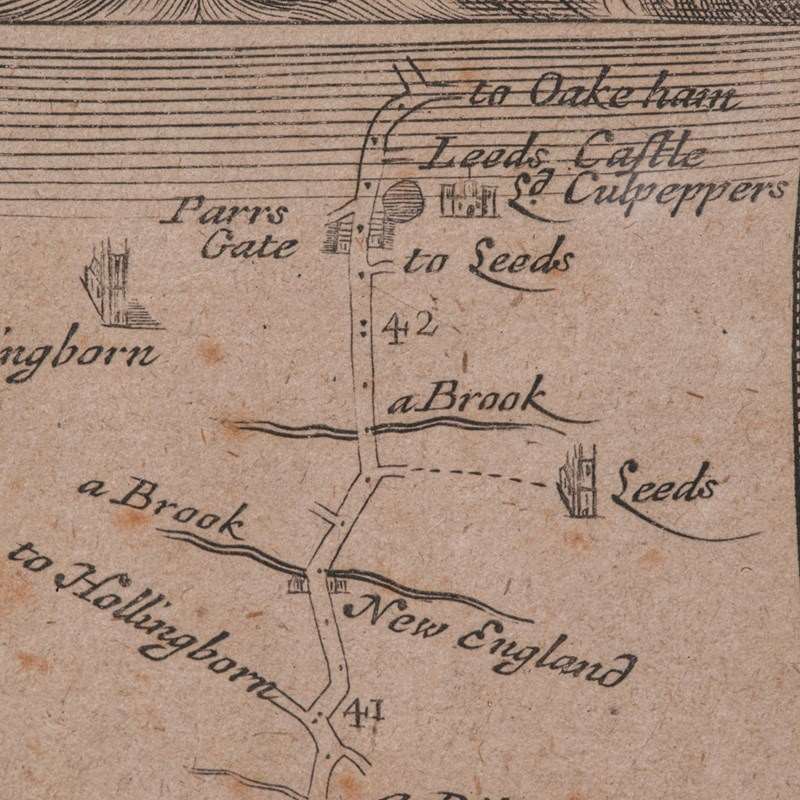 to Oakeham
Leeds Castle
Ld Culpeppers
Parrs
Gate
to Leeds
42
ingborn
a Brook
Leeds
a Brook
to Hollingborn
New England
41